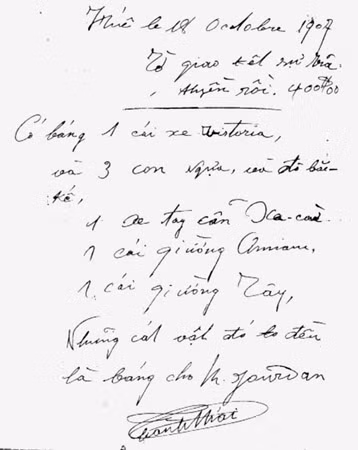 Huế le 18 Octobre 1907
Tờ giao kết sự bán
thuyền rồi. 400$00
Có báng 1 cái xe Victoria,
và 3 con ngựa, và đồ bắt-
kế,
1 xe tay cẩn Xa-cừ
1 cái giường
1 cái giường Tây,
Những cát vật đó to đều
là báng cho M. Jourdan
Thành Thái